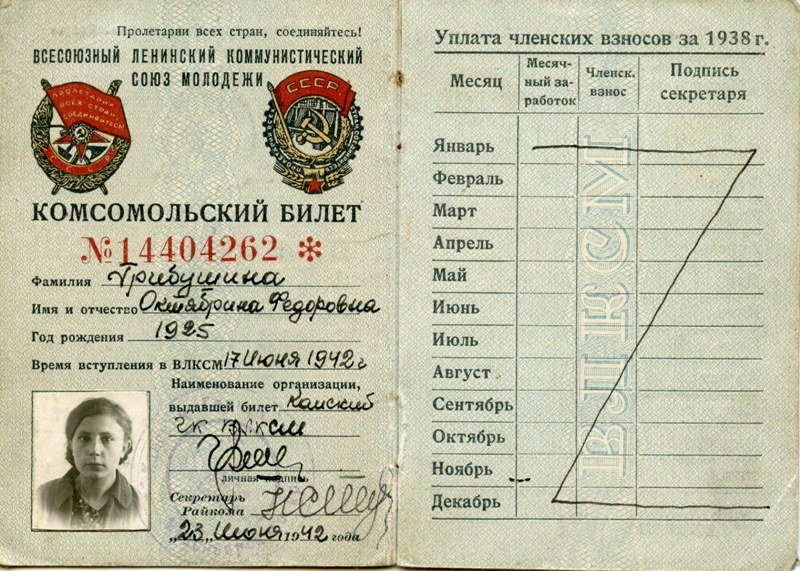 Пролетарии всех стран, соединяйтесь!
ВСЕСОЮЗНЫЙ ЛЕНИНСКИЙ КОММУНИСТИЧЕСКИЙ
СОЮЗ МОЛОДЕЖИ
ПРОЛЕТАРИИ
ВСЕХ СТРАН,
СОЕДИНЯЙТЕСЬ!
СССР
СССР
КОМСОМОЛЬСКИЙ БИЛЕТ
№14404262 *
Фамилия Грибушина
Имя и отчество Октябрина Федоровна
Год рождения 1925
Время вступления в ВЛКСМ 17 Июня 1942 г
Наименование организации,
выдавшей билет
ГК ВЛКСМ
личная подпись
Секретарь
Райкома
„23„ Июня 1942 года
Уплата членских взносов за 1938 г.
Месяц
Месяч-
ный за-
работок
Членск.
взнос
Подпись
секретаря
Январь
Февраль
Март
Апрель
Май
Июнь
Июль
Август
Сентябрь
Октябрь
Ноябрь
Декабрь
ВЛКСМ